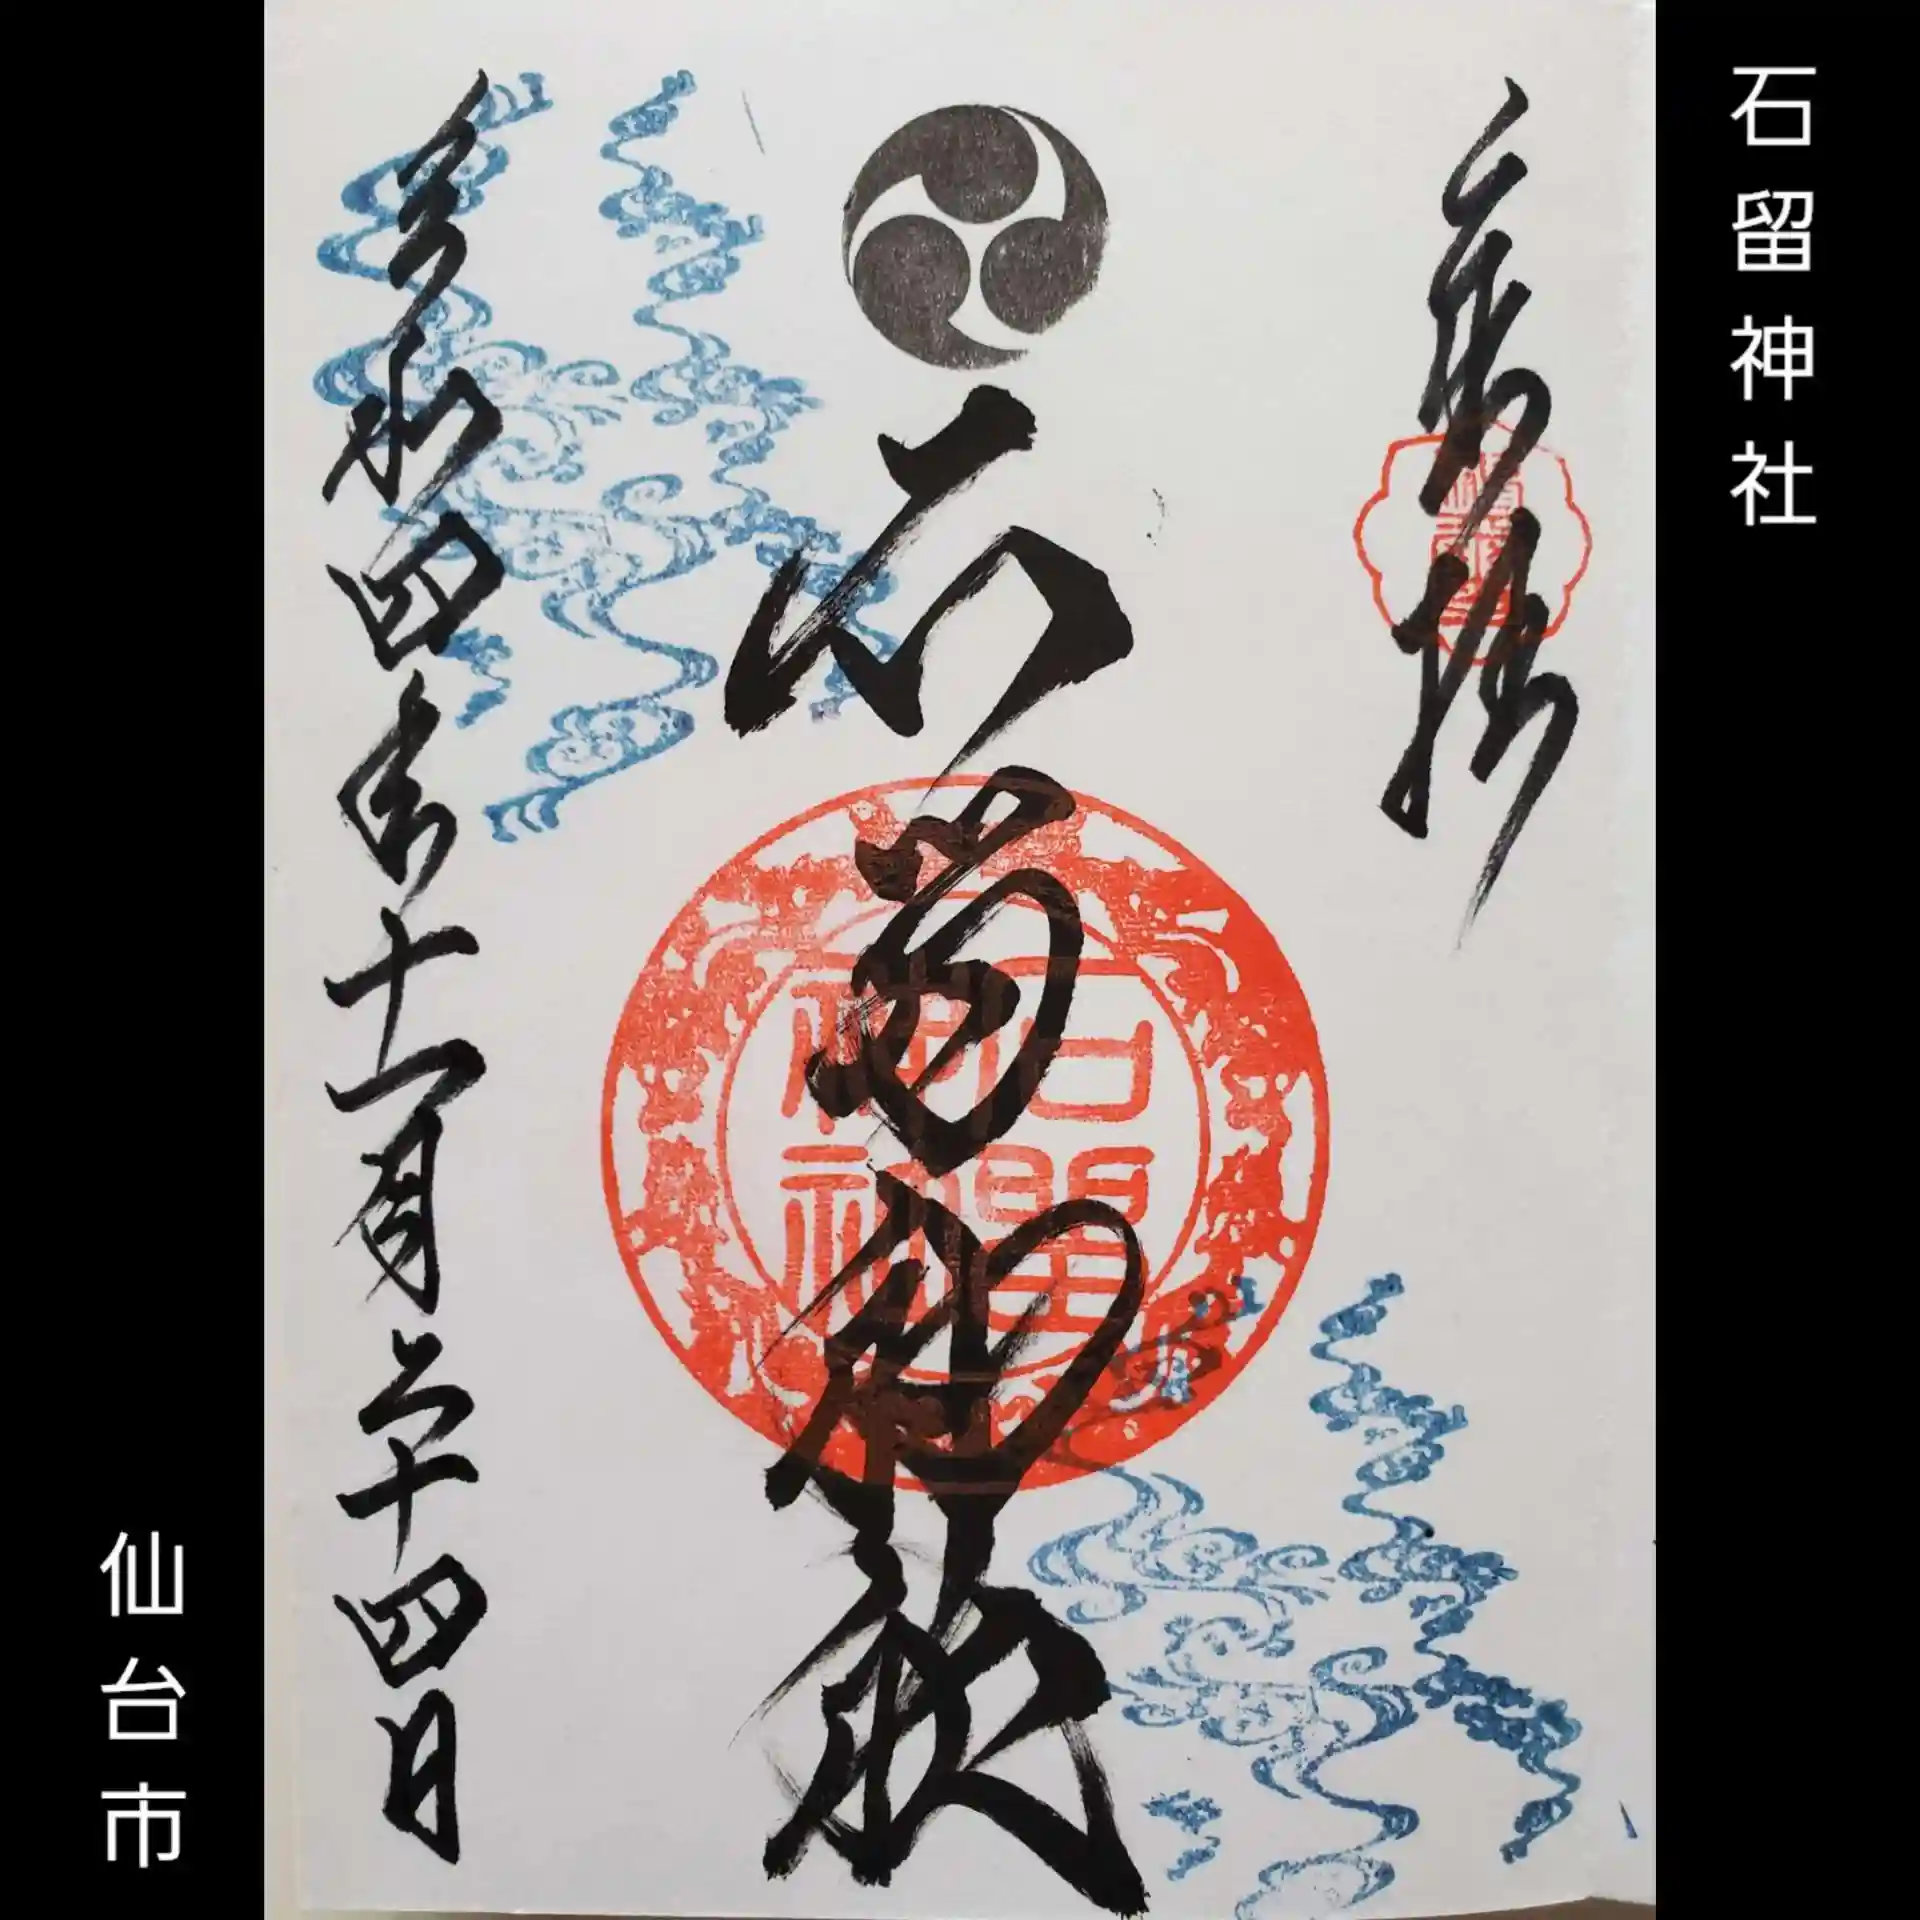 石留神社
奉拝
石留神社
石留
神社
令和四年十一月二十四日
仙台市